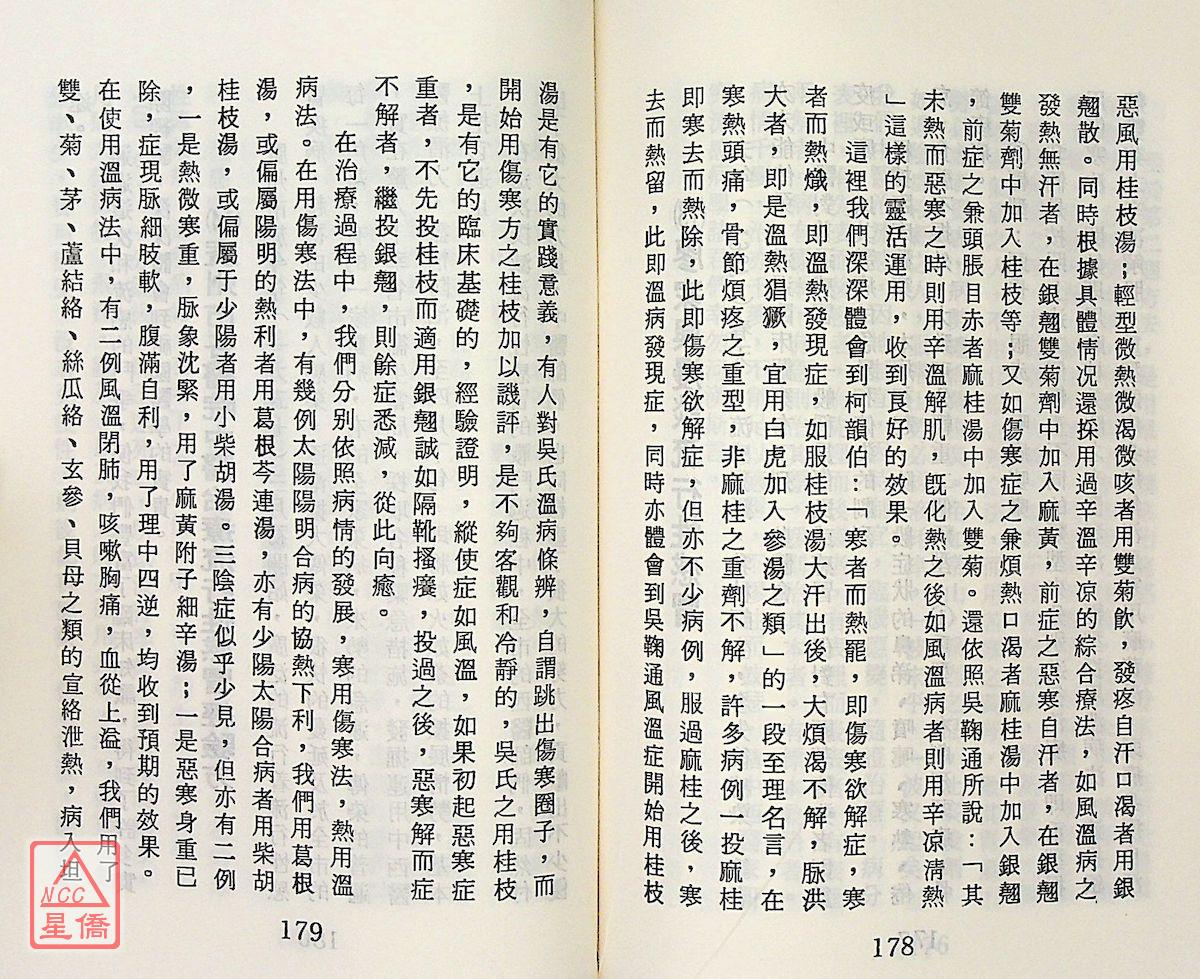 惡風用桂枝湯；輕型微熱微渴微咳者用雙菊飲，發疼自汗口渴者用銀
翹散。同時根據具體情況還採用過辛溫辛凉的綜合療法，如風溫病之
發熱無汗者，在銀翹雙菊劑中加入麻黃，前症之惡寒自汗者，在銀翹
雙菊劑中加入桂枝等；又如傷寒症之兼煩熱口渴者麻桂湯中加入銀翹
，前症之兼頭脹目赤者麻桂湯中加入雙菊。還依照吳鞠通所說：「其
未熱而惡寒之時則用辛溫解肌，旣化熱之後如風溫病者則用辛凉清熱
」這樣的靈活運用，收到良好的效果。
這裡我們深深體會到柯韻伯：「寒者而熱罷，即傷寒欲解症，寒
者而熱熾，即溫熱發現症，如服桂枝湯大汗出後，大煩渴不解，脈洪
大者，即是溫熱猖獗，宜用白虎加入參湯之類」的一段至理名言，在
寒熱頭痛，骨節煩疼之重型，非麻桂之重劑不解，許多病例一投麻桂
即寒去而熱除，此即傷寒欲解症，但亦不少病例，服過麻桂之後，寒
去而熱留，此即溫病發現症，同時亦體會到吳鞠通風溫症開始用桂枝
178
湯是有它的實踐意義，有人對吳氏溫病條辨，自謂跳出傷寒圈子，而
開始用傷寒方之桂枝加以譏評，是不夠客觀和冷靜的，吳氏之用桂枝
，是有它的臨床基礎的，經驗證明，縱使症如風溫，如果初起惡寒症
重者，不先投桂枝而適用銀翹誠如隔靴搔癢，投過之後，惡寒解而症
不解者，繼投銀翹，則餘症悉減，從此向癒。
在治療過程中，我們分別依照病情的發展，寒用傷寒法，熱用溫
病法。在用傷寒法中，有幾例太陽陽明合病的協熱下利，我們用葛根
湯，或偏屬陽明的熱利者用葛根芩連湯，亦有少陽太陽合病者用柴胡
桂枝湯，或偏屬于少陽者用小柴胡湯。三陰症似乎少見，但亦有二例
，一是熱微寒重，脈象沈緊，用了麻黃附子細辛湯；一是惡寒身重已
除，症現脉細肢軟，腹滿自利，用了理中四逆，均收到預期的效果。
在使用溫病法中，有二例風溫閉肺，咳嗽胸痛，血從上溢，我們用了
雙、菊、茅、蘆結絡、絲瓜絡、玄參、貝母之類的宣絡泄熱，病入坦
179
NCC
星僑